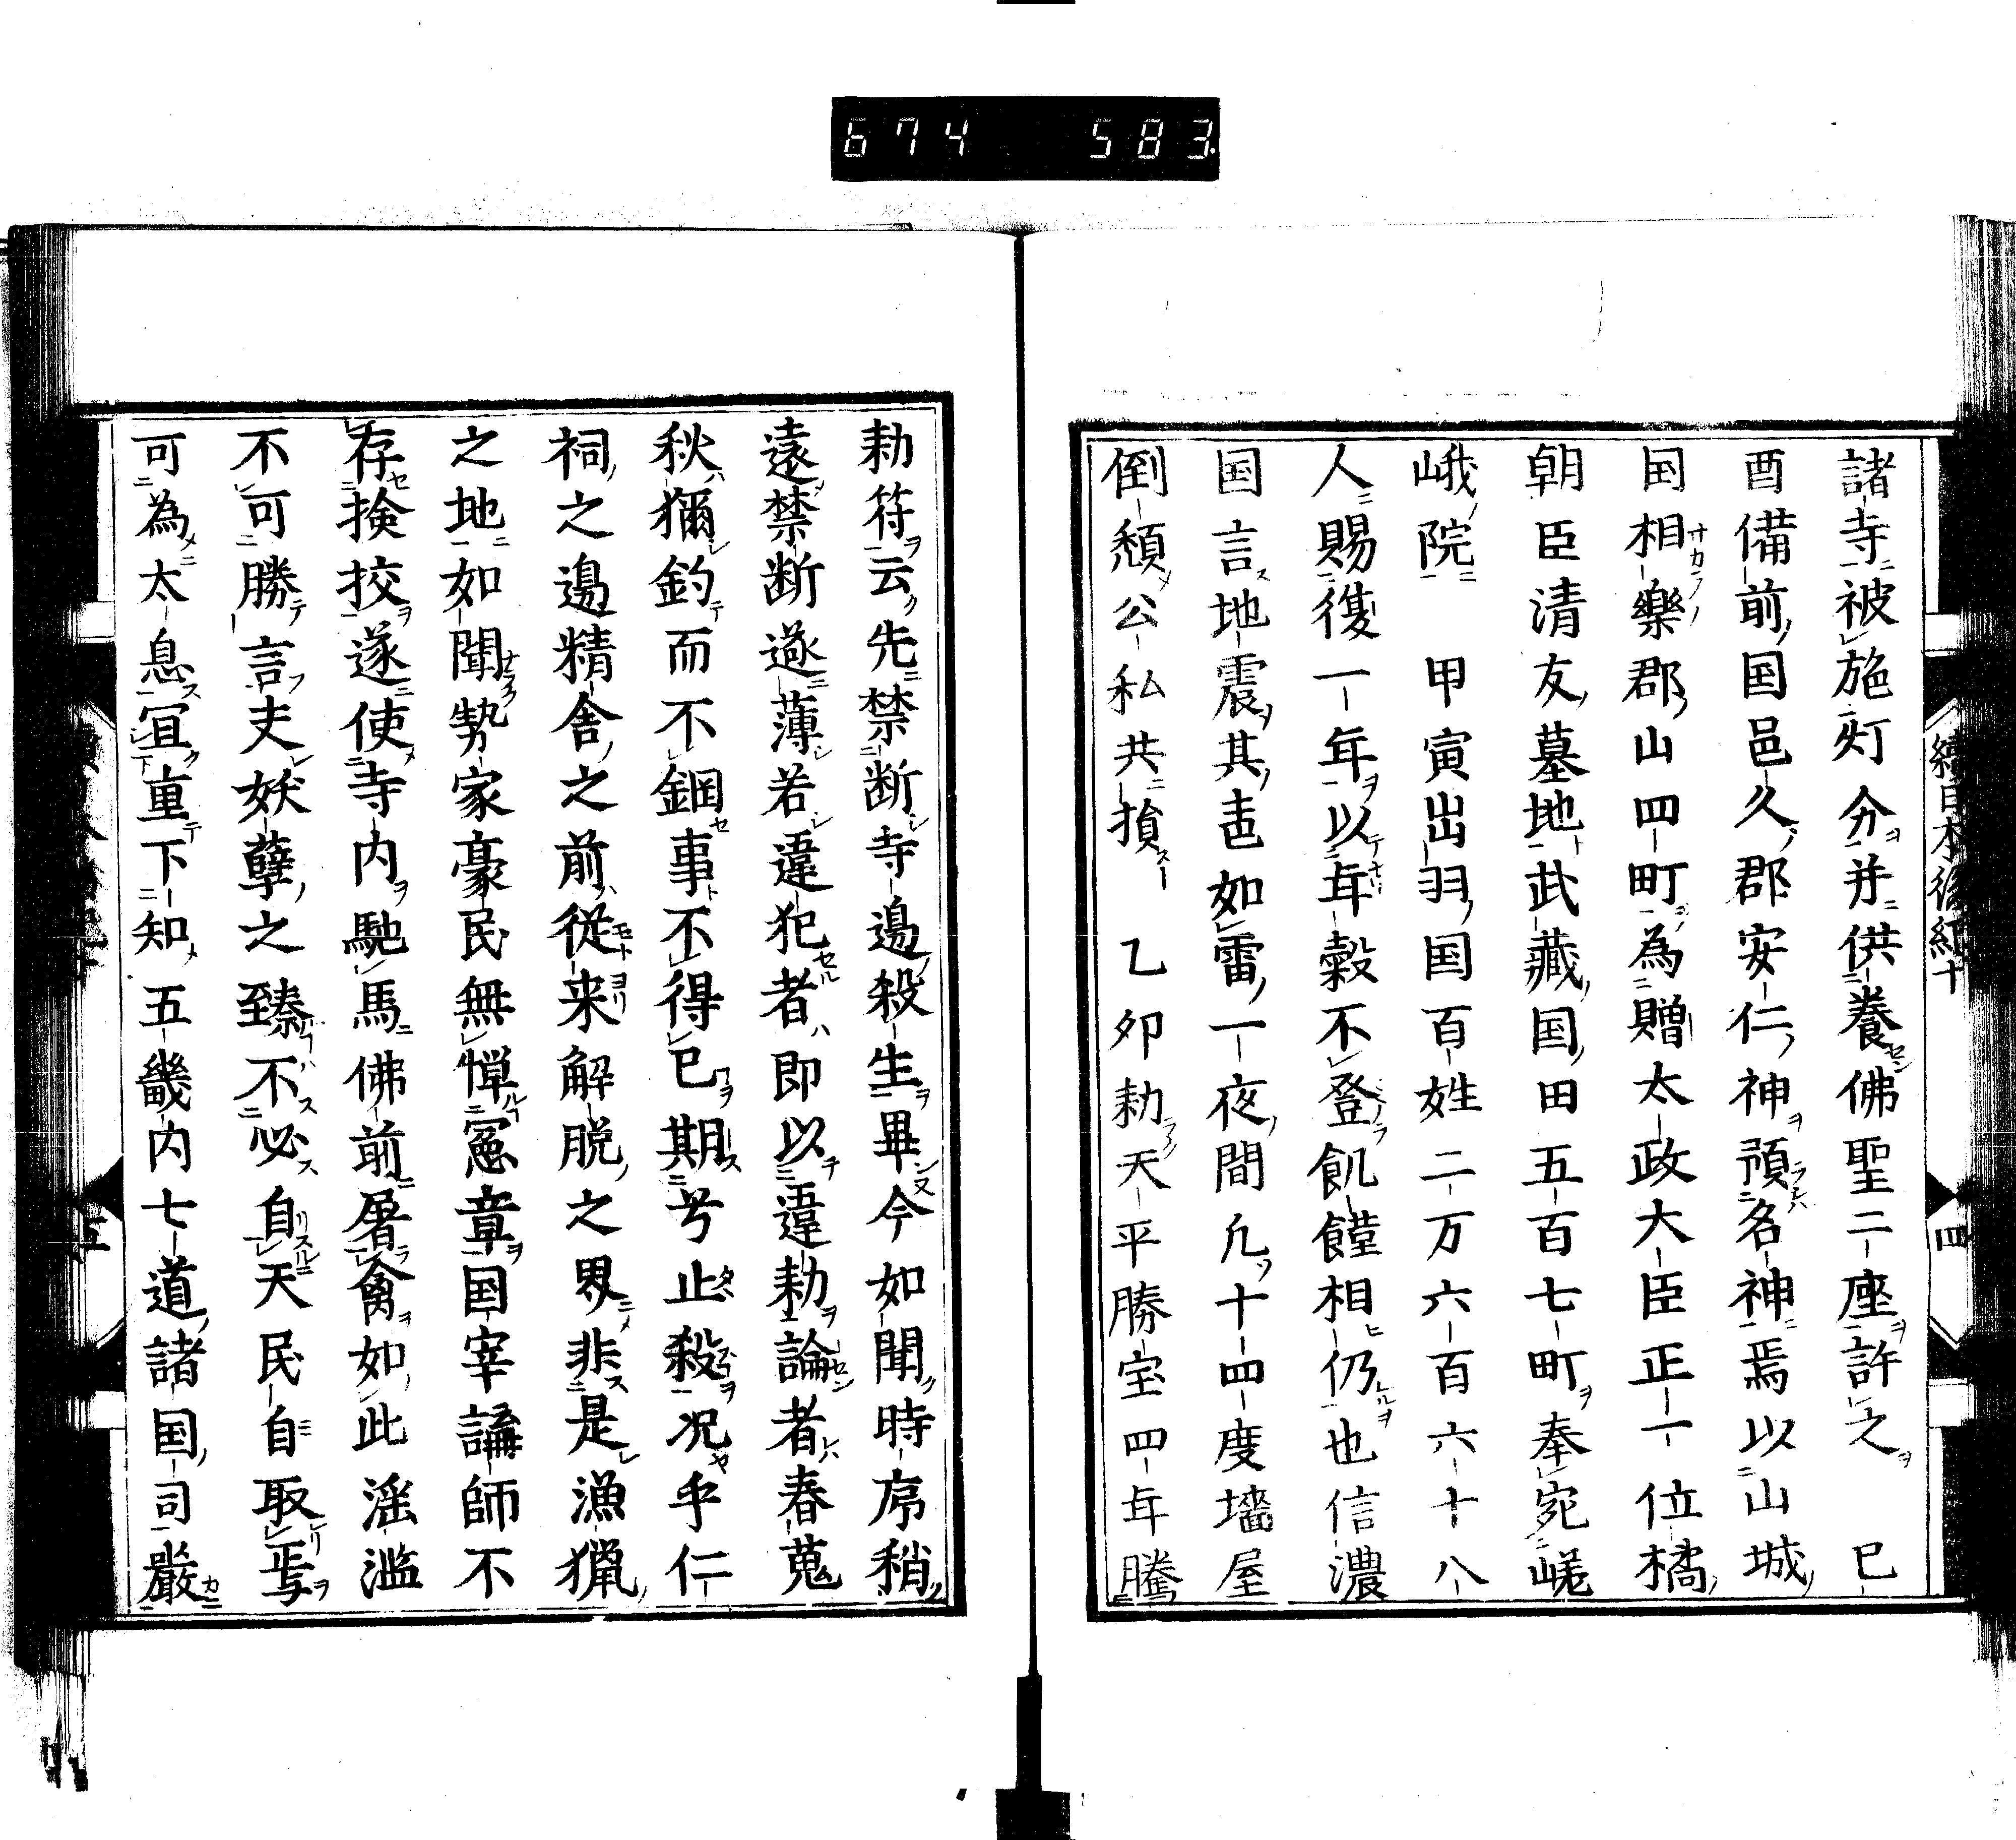 674 583
諸寺被施灯分并供養佛聖二座許之 已
酉備前国邑久郡安仁神預名神焉以山城
国相樂郡山四町為贈太政大臣正一位橘
朝臣清友墓地武藏国田五百七町奉宛嵯
峨院 甲寅出羽国百姓二万六百六十八
人賜復一年以年穀不登飢饉相仍也信濃
国言地震其声如雷一夜間凡十四度墻屋
倒頽公私共損 乙卯勅天平勝宝四年騰
續日本後紀十
四
勅符云先禁断寺邊殺生畢今如聞時序稍
遠禁断遂薄若違犯者即以違勅論者春蒐
秋獮釣而不綱事不得已期兮止殺况乎仁
祠之邊精舎之前從来解脱之界非是漁獵
之地如聞㔟家豪民無憚憲章国宰講師不
存檢挍遂使寺内馳馬佛前屠禽如此滛濫
不可勝言夫妖孽之臻不必自天民自取焉
可為太息冝重下知五畿内七道諸国司嚴